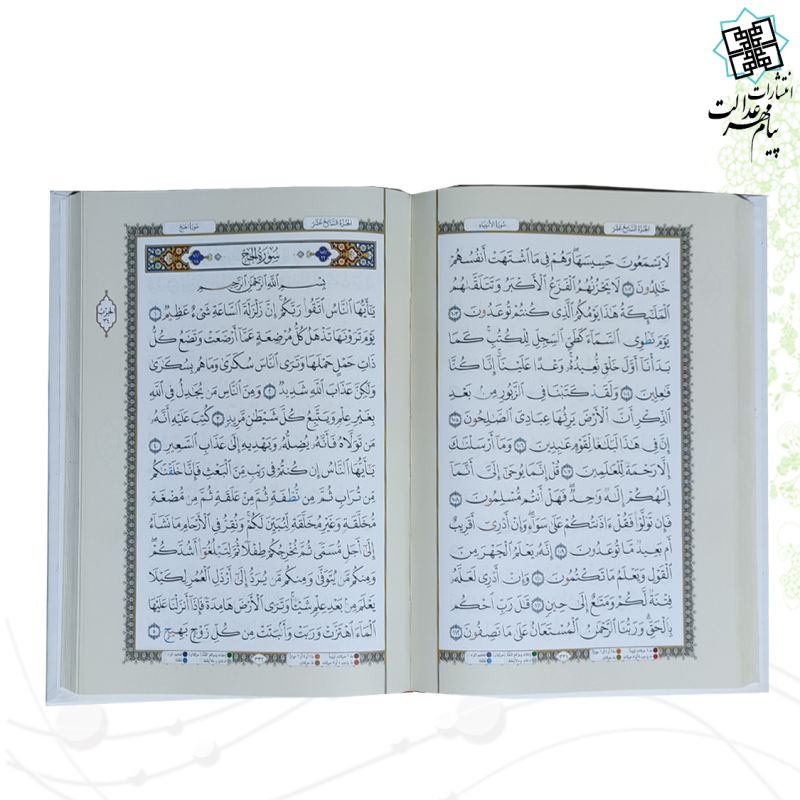 انتشارات
پیام مهر عدالت
سُورَةُ الأَنبِيَاءِ
الجُزءُ السَّابِعَ عَشَرَ
لَا يَسْمَعُونَ حَسِيسَهَا وَهُمْ فِي مَا اشْتَهَتْ أَنفُسُهُمْ
خَالِدُونَ ١٠٢ لَا يَحْزُنُهُمُ الْفَزَعُ الْأَكْبَرُ وَتَتَلَقَّاهُمُ
الْمَلَائِكَةُ هَٰذَا يَوْمُكُمُ الَّذِي كُنتُمْ تُوعَدُونَ ١٠٣
يَوْمَ نَطْوِي السَّمَاءَ كَطَيِّ السِّجِلِّ لِلْكُتُبِ كَمَا
بَدَأْنَا أَوَّلَ خَلْقٍ نُّعِيدُهُ وَعْدًا عَلَيْنَا إِنَّا كُنَّا
فَاعِلِينَ ١٠٤ وَلَقَدْ كَتَبْنَا فِي الزَّبُورِ مِن بَعْدِ
الذِّكْرِ أَنَّ الْأَرْضَ يَرِثُهَا عِبَادِيَ الصَّالِحُونَ ١٠٥
إِنَّ فِي هَٰذَا لَبَلَاغًا لِّقَوْمٍ عَابِدِينَ ١٠٦ وَمَا أَرْسَلْنَاكَ
إِلَّا رَحْمَةً لِّلْعَالَمِينَ ١٠٧ قُلْ إِنَّمَا يُوحَىٰ إِلَيَّ أَنَّمَا
إِلَٰهُكُمْ إِلَٰهٌ وَاحِدٌ فَهَلْ أَنتُم مُّسْلِمُونَ ١٠٨
فَإِن تَوَلَّوْا فَقُلْ آذَنتُكُمْ عَلَىٰ سَوَاءٍ وَإِنْ أَدْرِي أَقَرِيبٌ
أَم بَعِيدٌ مَّا تُوعَدُونَ ١٠٩ إِنَّهُ يَعْلَمُ الْجَهْرَ مِنَ
الْقَوْلِ وَيَعْلَمُ مَا تَكْتُمُونَ ١١٠ وَإِنْ أَدْرِي لَعَلَّهُ
فِتْنَةٌ لَّكُمْ وَمَتَاعٌ إِلَىٰ حِينٍ ١١١ قَالَ رَبِّ احْكُم
بِالْحَقِّ وَرَبُّنَا الرَّحْمَٰنُ الْمُسْتَعَانُ عَلَىٰ مَا تَصِفُونَ ١١٢
٣٣١
الجُزءُ السَّابِعَ عَشَرَ
سُورَةُ الحَجِّ
سُورَةُ الحَجِّ
بِسْمِ اللَّهِ الرَّحْمَٰنِ الرَّحِيمِ
يَا أَيُّهَا النَّاسُ اتَّقُوا رَبَّكُمْ إِنَّ زَلْزَلَةَ السَّاعَةِ شَيْءٌ عَظِيمٌ ١
يَوْمَ تَرَوْنَهَا تَذْهَلُ كُلُّ مُرْضِعَةٍ عَمَّا أَرْضَعَتْ وَتَضَعُ كُلُّ
ذَاتِ حَمْلٍ حَمْلَهَا وَتَرَى النَّاسَ سُكَارَىٰ وَمَا هُم بِسُكَارَىٰ
وَلَٰكِنَّ عَذَابَ اللَّهِ شَدِيدٌ ٢ وَمِنَ النَّاسِ مَن يُجَادِلُ فِي اللَّهِ
بِغَيْرِ عِلْمٍ وَيَتَّبِعُ كُلَّ شَيْطَانٍ مَّرِيدٍ ٣ كُتِبَ عَلَيْهِ أَنَّهُ
مَن تَوَلَّاهُ فَأَنَّهُ يُضِلُّهُ وَيَهْدِيهِ إِلَىٰ عَذَابِ السَّعِيرِ ٤
يَا أَيُّهَا النَّاسُ إِن كُنتُمْ فِي رَيْبٍ مِّنَ الْبَعْثِ فَإِنَّا خَلَقْنَاكُم
مِّن تُرَابٍ ثُمَّ مِن نُّطْفَةٍ ثُمَّ مِنْ عَلَقَةٍ ثُمَّ مِن مُّضْغَةٍ
مُّخَلَّقَةٍ وَغَيْرِ مُخَلَّقَةٍ لِّنُبَيِّنَ لَكُمْ وَنُقِرُّ فِي الْأَرْحَامِ مَا نَشَاءُ
إِلَىٰ أَجَلٍ مُّسَمًّى ثُمَّ نُخْرِجُكُمْ طِفْلًا ثُمَّ لِتَبْلُغُوا أَشُدَّكُمْ
وَمِنكُم مَّن يُتَوَفَّىٰ وَمِنكُم مَّن يُرَدُّ إِلَىٰ أَرْذَلِ الْعُمُرِ لِكَيْلَا
يَعْلَمَ مِن بَعْدِ عِلْمٍ شَيْئًا وَتَرَى الْأَرْضَ هَامِدَةً فَإِذَا أَنزَلْنَا عَلَيْهَا
الْمَاءَ اهْتَزَّتْ وَرَبَتْ وَأَنبَتَتْ مِن كُلِّ زَوْجٍ بَهِيجٍ ٥
٣٣٢